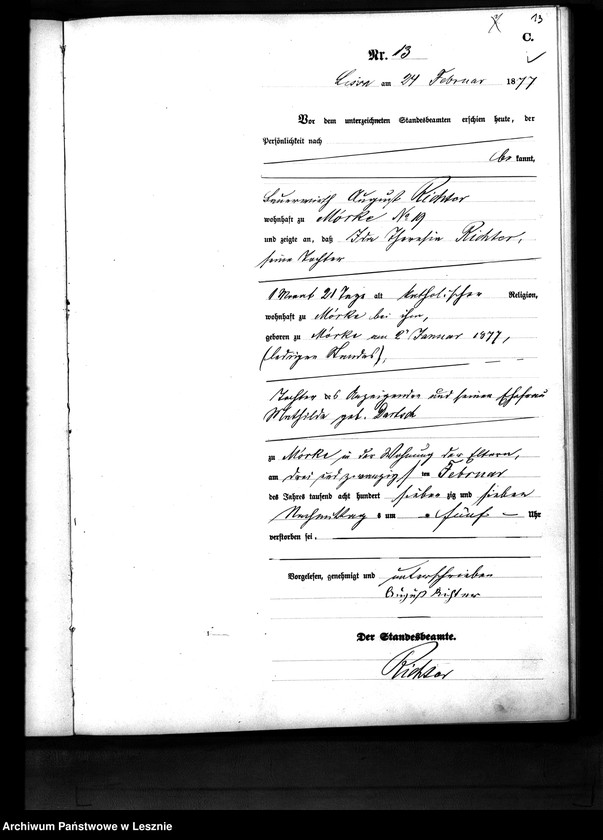 13
C.
Nr. 13
Lissa am 24 Februar 1877
Vor dem unterzeichneten Standesbeamten erschien heute, der
Persönlichkeit nach
be kannt,
August Richter
wohnhaft zu Mörke No 19
und zeigte an, daß Ida Theresia Richter,
seine Tochter
1 Monat 21 Tage alt katholischer Religion,
wohnhaft zu Mörke bei ihm,
geboren zu Mörke am 2 Januar 1877,
(ledigen Standes),
Tochter des Anzeigenden und seiner Ehefrau
Mathilde geb.
zu Mörke in der Wohnung der Eltern,
am drei und zwanzigst en Februar
des Jahres tausend acht hundert sieben zig und sieben
Nachmittag s um fünf Uhr
verstorben sei.
Vorgelesen, genehmigt und unterschrieben
August Richter
Der Standesbeamte.
Richter
Archiwum Państwowe w Lesznie